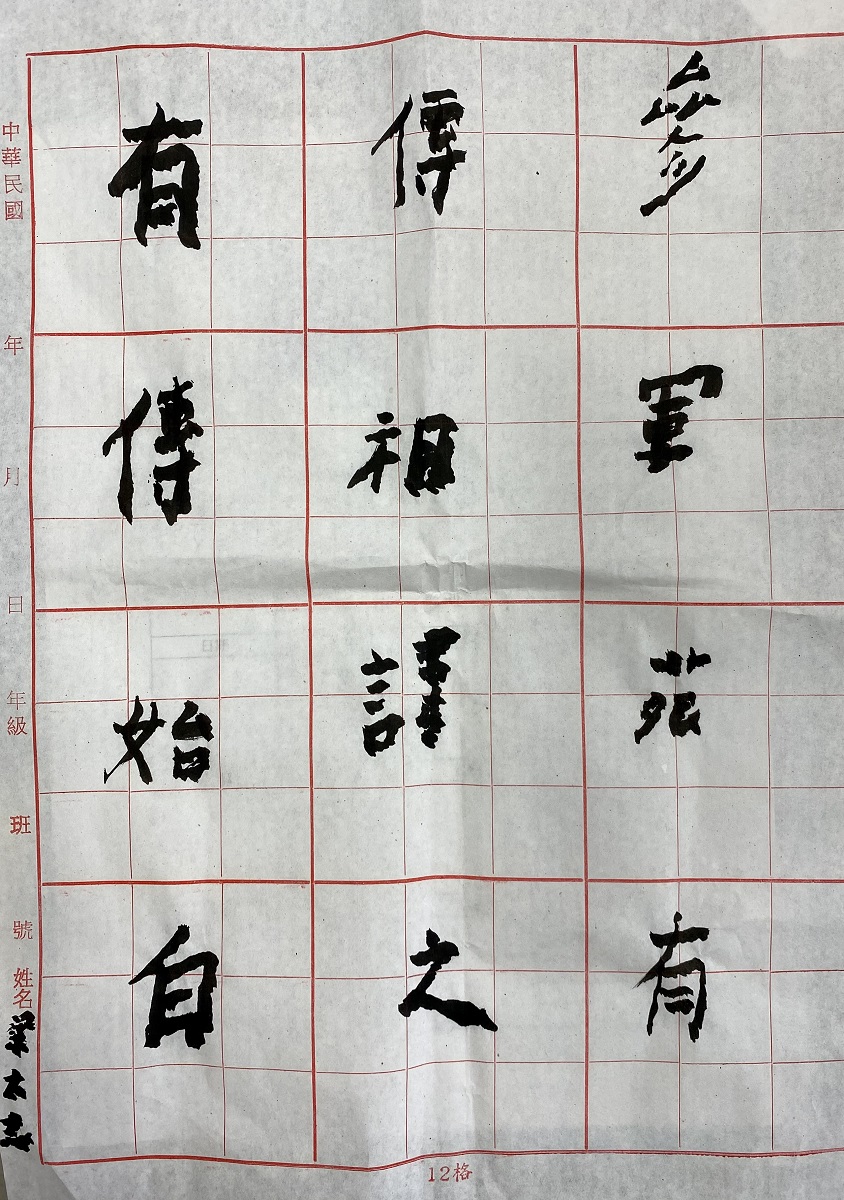 參軍有
傳相謹之
有傳始自
中華民國 年 月 日 年級 班 號 姓名 梁
12格